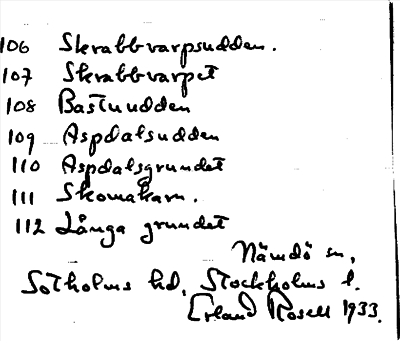 106 Skrabbvarpsudden.
107 Skrabbvarpet
108 Bastuudden
109 Aspdalsudden
110 Aspdalsgrundet
111 Skomakarn.
112 Långa grundet
Nämdö sn,
Sotholms hd, Stockholms l.
Erland Rosell 1933.